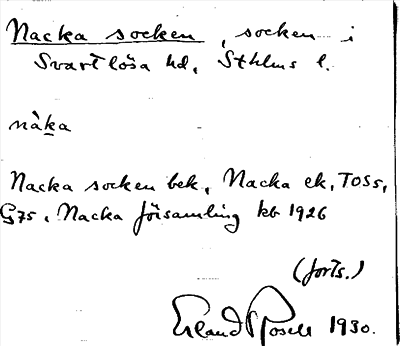 Nacka socken, socken i
Svartlösa hd, Sthlms l.
nàka
Nacka socken bek, Nacka ek, TOS5,
G75, Nacka församling kb 1926
(forts.)
Erland Rosell 1930.